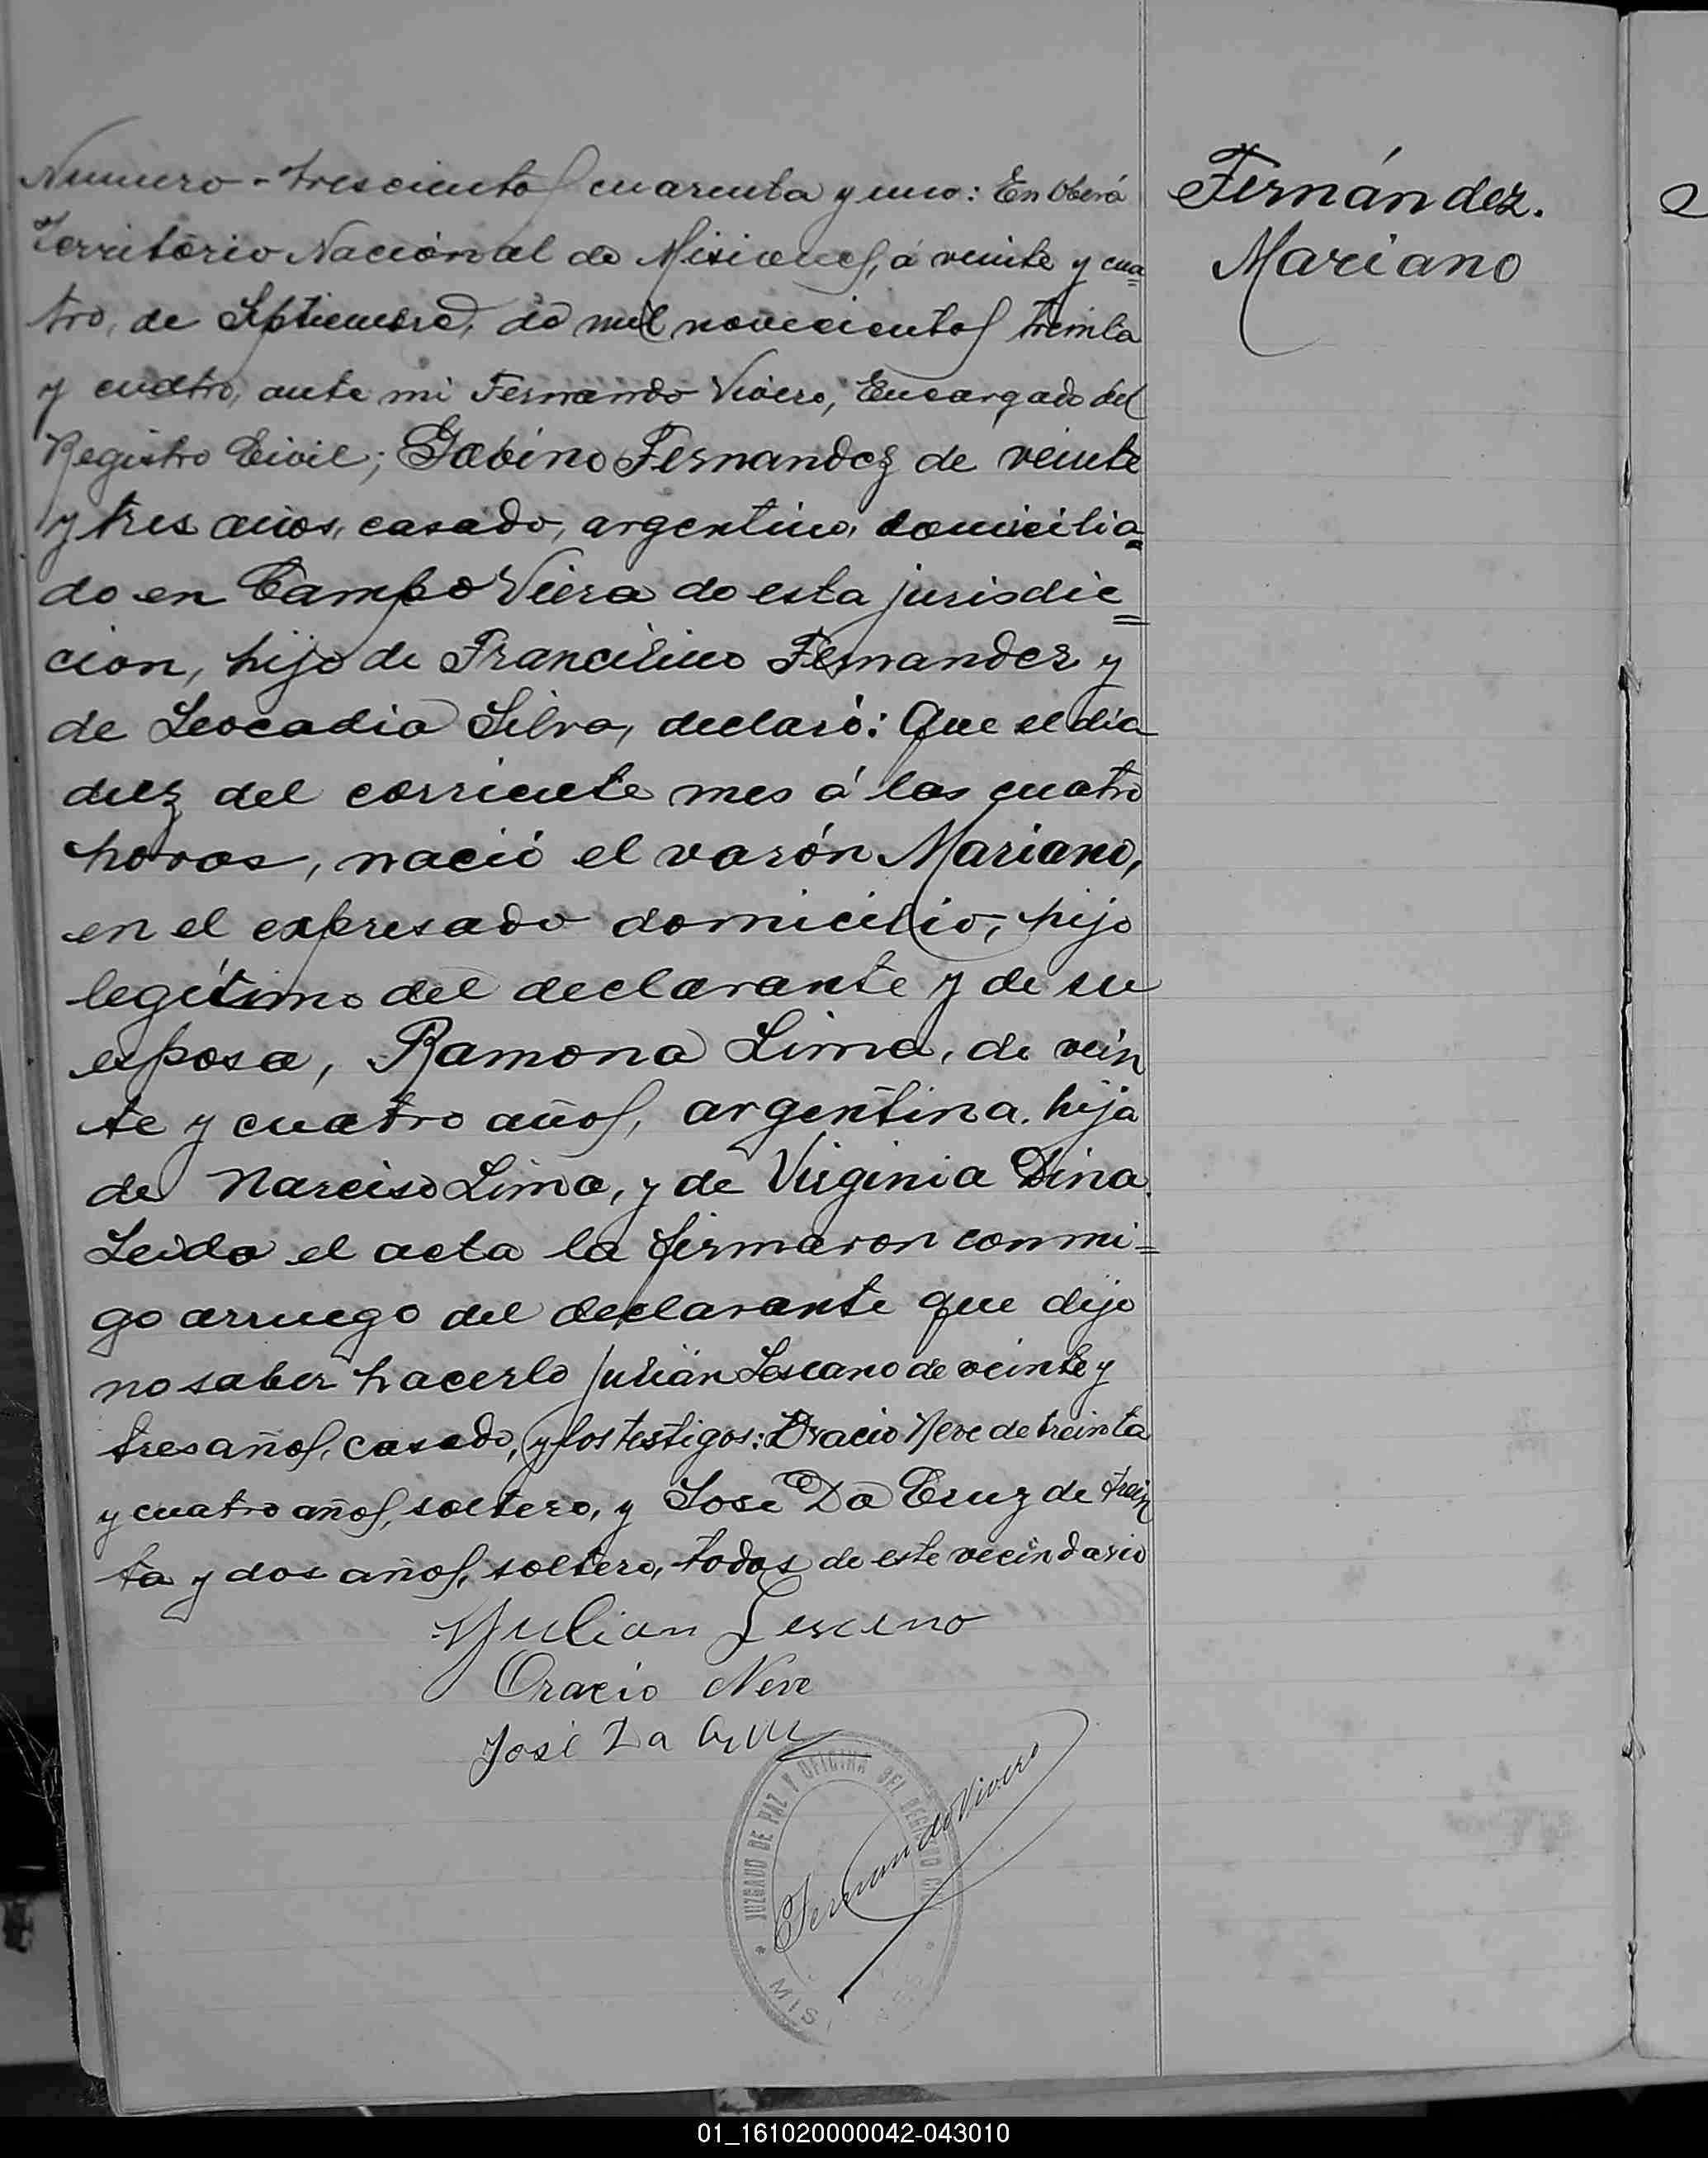 Numero - trescientos cuarenta y uno: En Oberá
Territorio Nacional de Misiones, á veinte y cua=
tro, de Septiembre, de mil novecientos treinta
y cuatro, ante mi Fernando Vivero, Encargado del
Registro Civil; Gabino Fernandez de veinte
y tres años, casado, argentino, domicilia=
do en Campo Viera de esta jurisdic=
cion, hijo de Francilino Fernandez y
de Leocadia Silva, declaró: Que el día
diez del corriente mes á las cuatro
horas, nació el varón Mariano,
en el expresado domicilio, hijo
legítimo del declarante y de su
esposa, Ramona Lima, de vein
te y cuatro años, argentina, hija
de Narciso Lima, y de Virginia Dina.
Leida el acta la firmaron conmi=
go arruego del declarante que dijo
no saber hacerlo Julián Lescano de veinte y
tres años, casado, y los testigos: Oracio Neve de treinta
y cuatro años, soltero, y José Da Cruz de trein
ta y dos años, soltero, todos de este vecindario
Yulian Lesceno
Oracio Neve
José Da Cruz
Fernando Vivero
JUZGADO DE PAZ Y OFICINA DEL REGISTRO CIVIL
Fernández.
Mariano
01_161020000042-043010